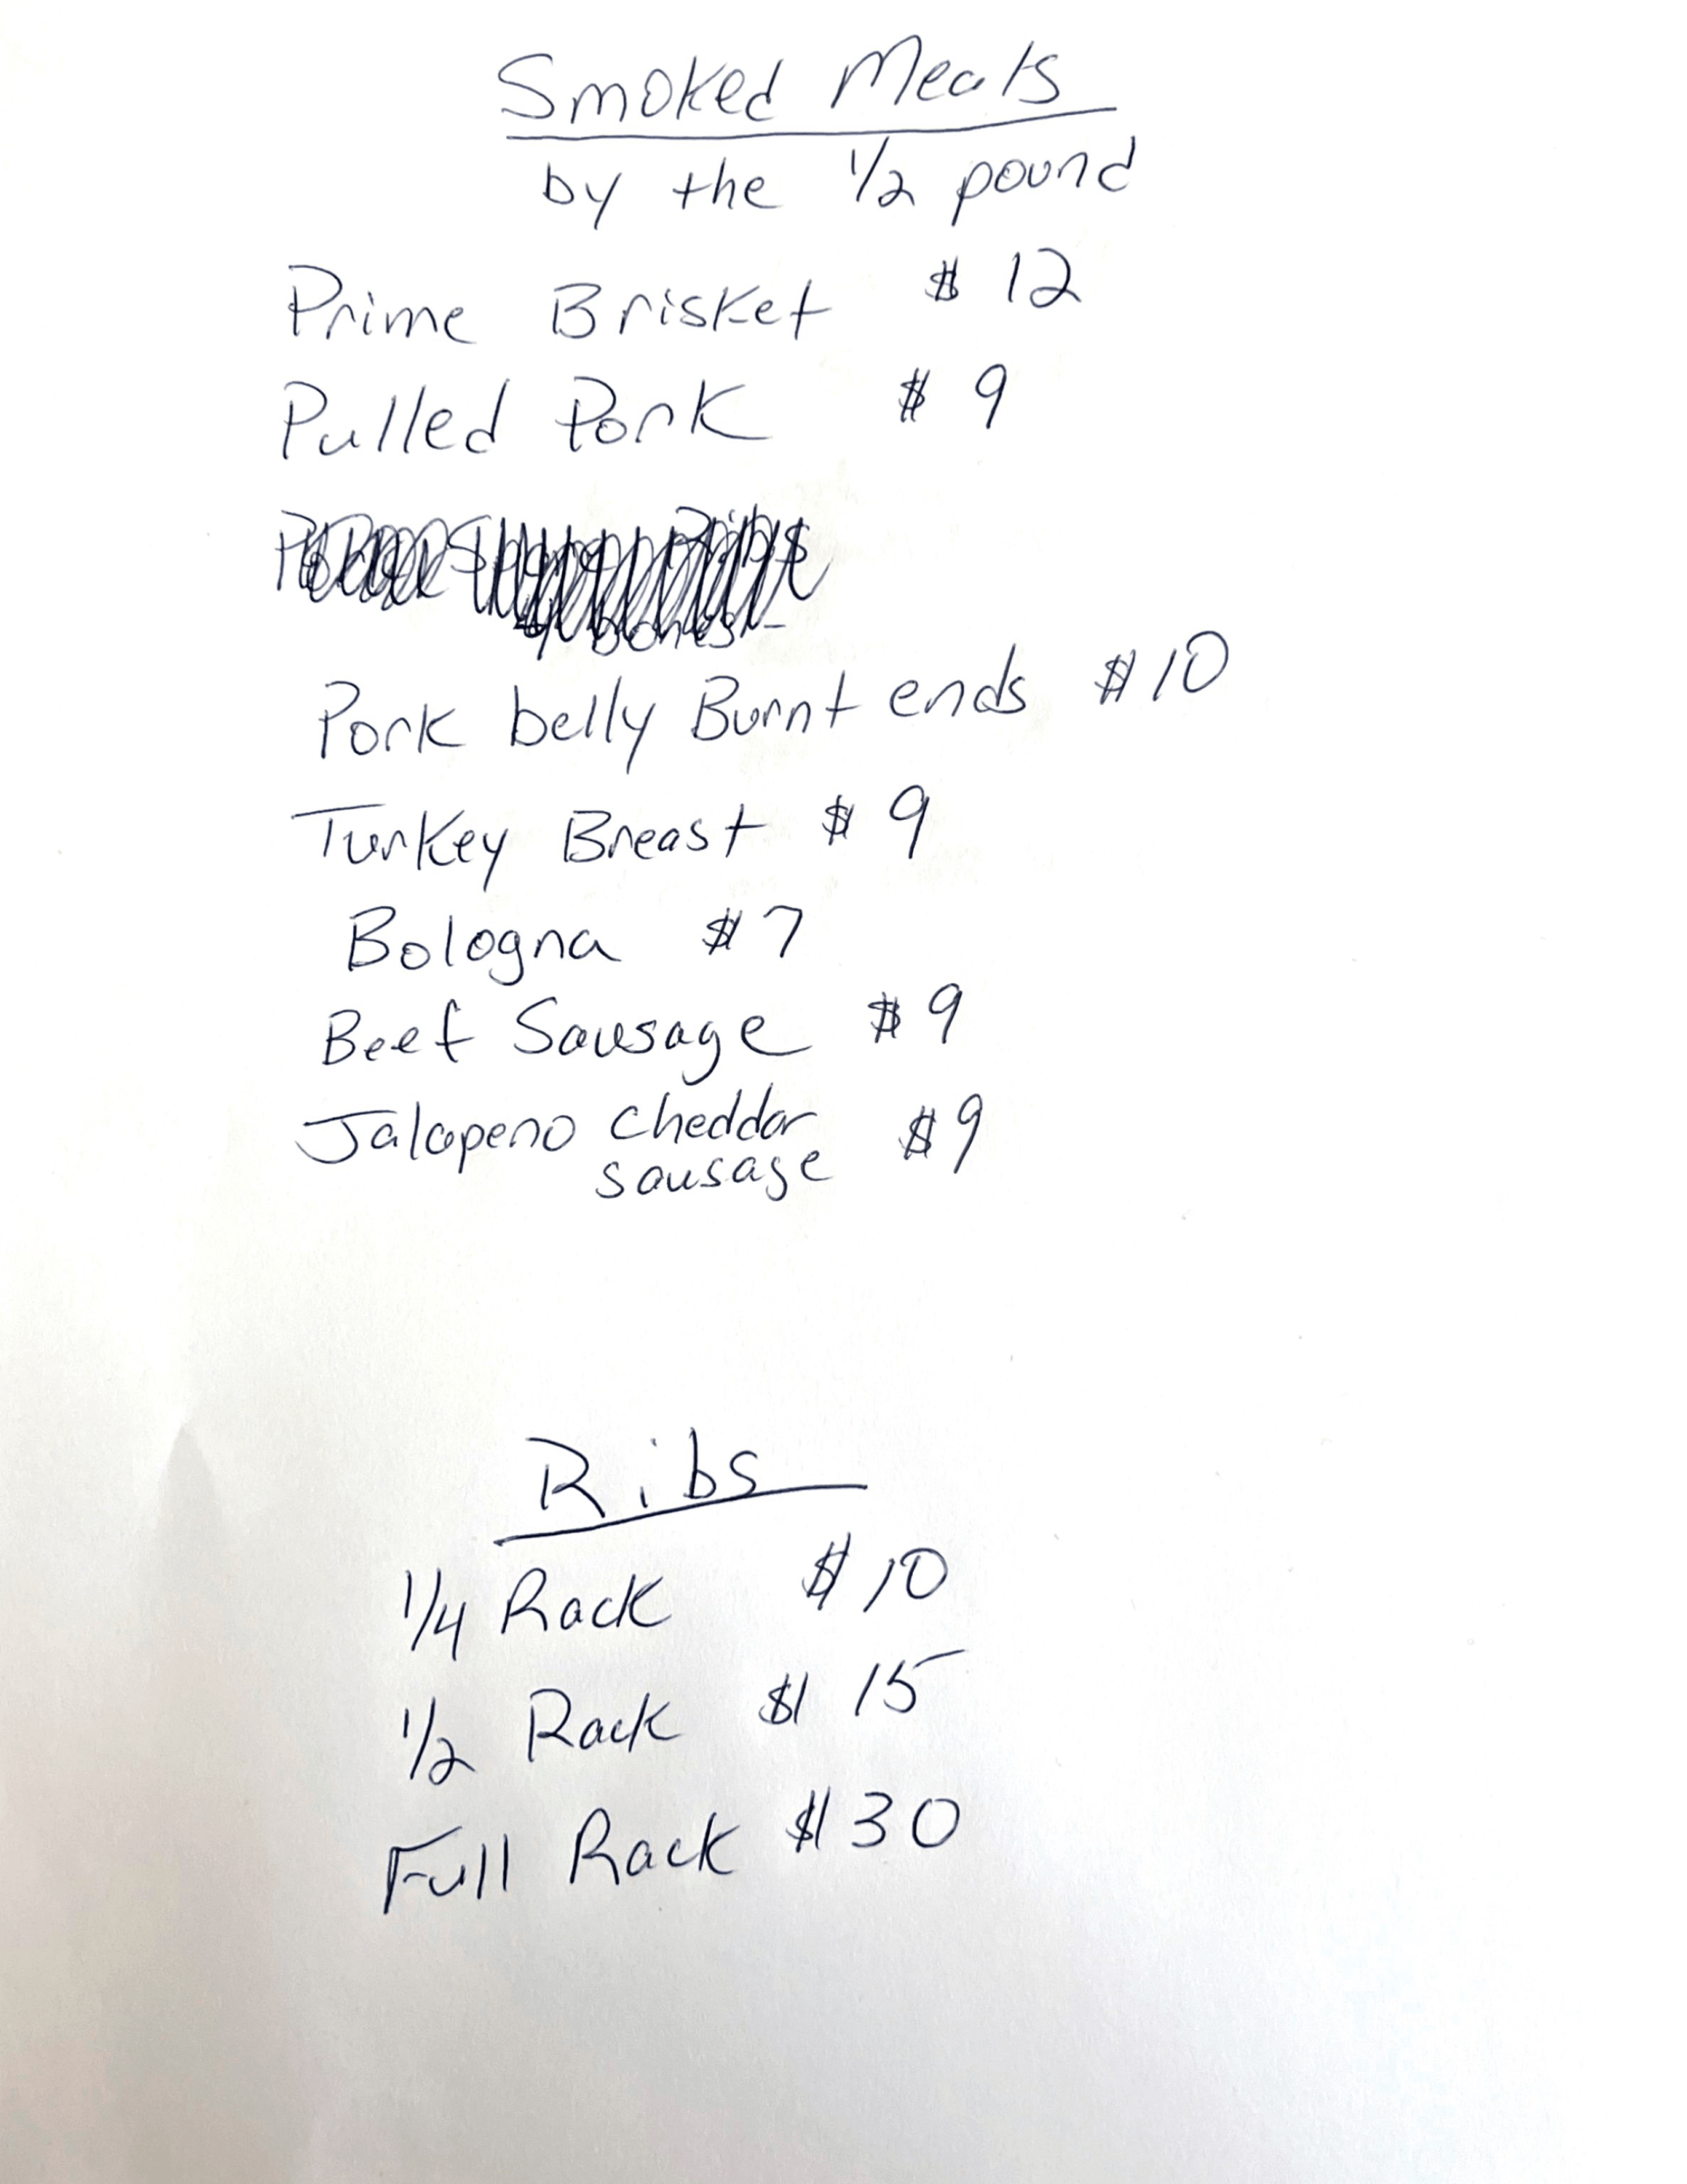 Smoked Meats
by the 1/2 pound
Prime Brisket $ 12
Pulled Pork $ 9
bones
Pork belly Burnt ends $10
Turkey Breast $ 9
Bologna $7
Beef Sausage $9
Jalapeno cheddar $9
sausage
Ribs
1/4 Rack $10
1/2 Rack $ 15
Full Rack $30